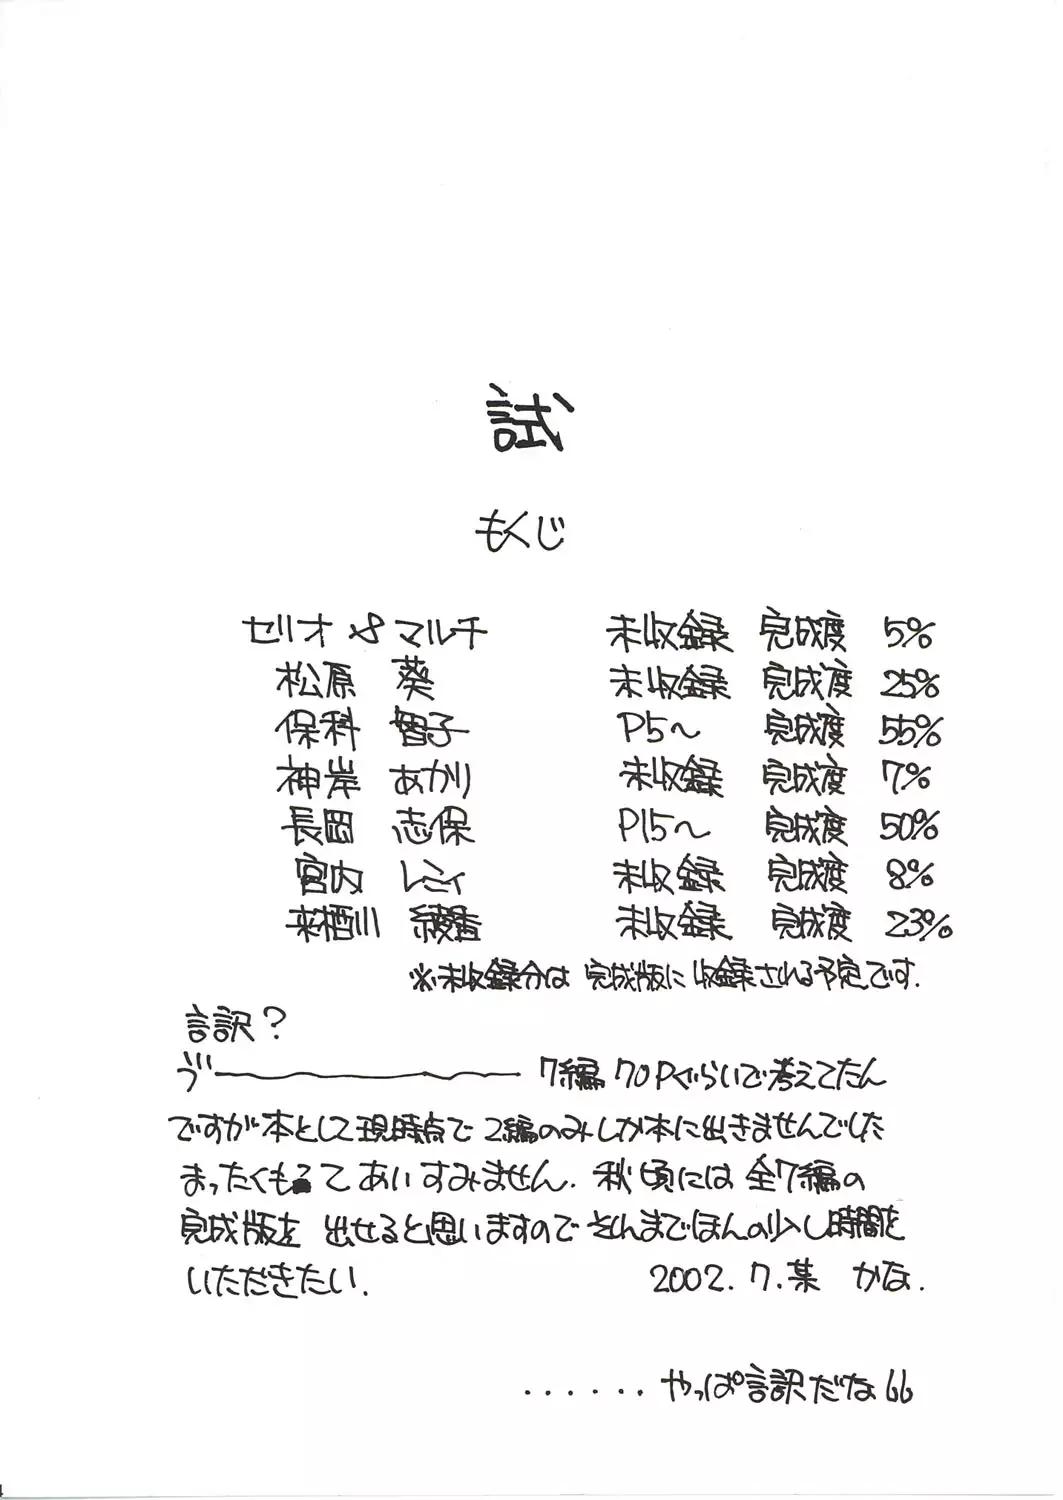 試
もくじ
セリオ & マルチ 未収録 完成度 5%
松原 葵 未収録 完成度 25%
保科 智子 P5〜 完成度 55%
神岸 あかり 未収録 完成度 7%
長岡 志保 P15〜 完成度 50%
宮内 レミィ 未収録 完成度 8%
来栖川 綾香 未収録 完成度 23%
※未収録分は 完成版に 収録される予定です.
言訳?
7編 70Pぐらいで考えてたん
ですが本として現時点で 2編のみしか本に出きませんでした
まったくもって あいすみません. 秋頃には 全7編の
完成版を 出せると思いますので それまでほんの少し時間を
いただきたい. 2002.7.某 かな.
......やっぱ言訳だな